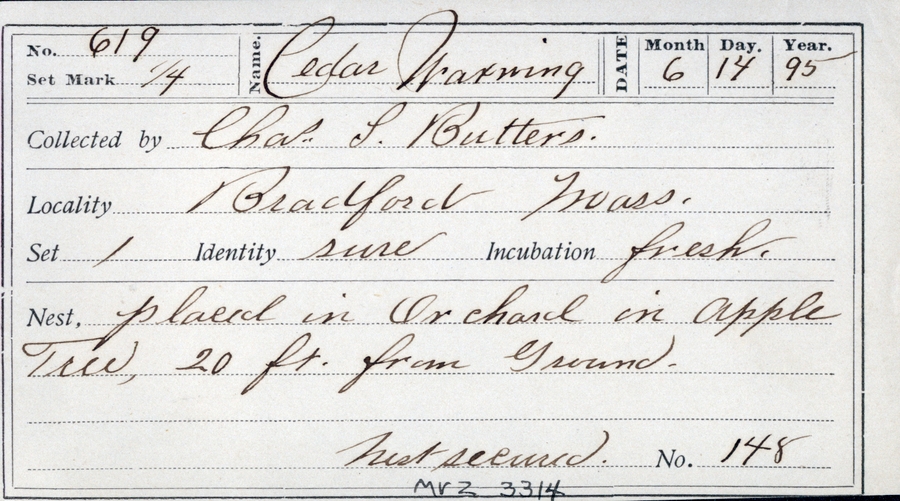 No. 619 Name. Cedar Waxwing DATE Month Day. Year.
Set Mark 1/4 6 14 95
Collected by Chas. S. Butters.
Locality Bradford Mass.
Set 1 Identity sure Incubation fresh.
Nest, placed in Orchard in apple
Tree, 20 ft. from Ground.
Nest secured. No. 148
MVZ 3314